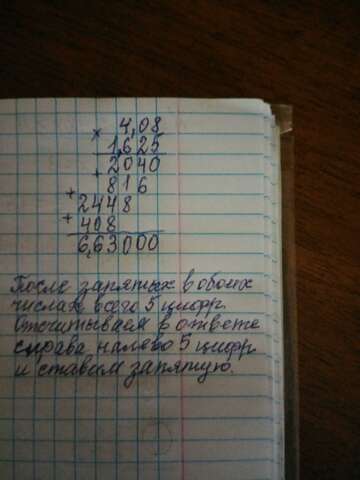 × 4,08
1,625
+ 2040
+ 816
2448
+ 408
6,63000
После запятых в обоих
числах всего 5 цифр.
Отсчитываем в ответе
справа налево 5 цифр
и ставим запятую.